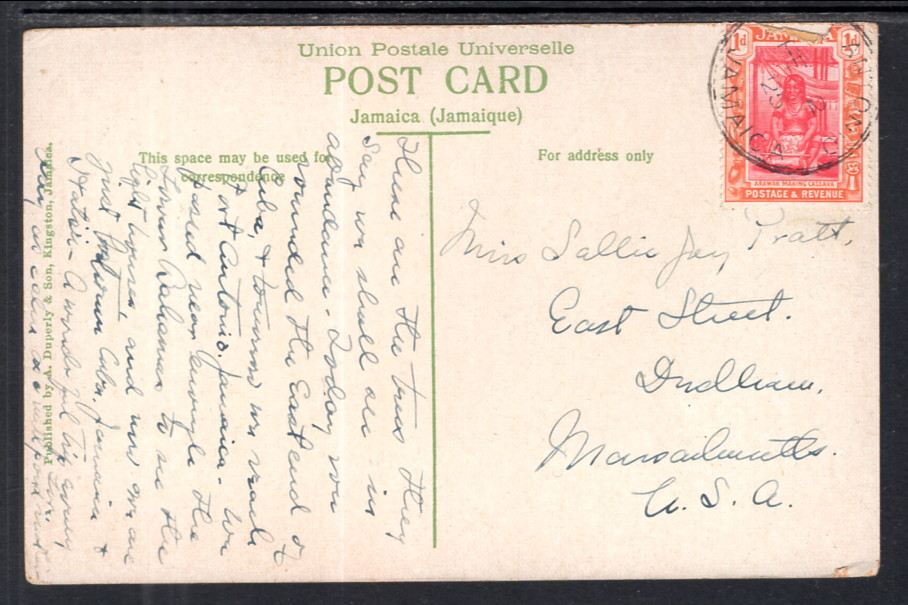 Union Postale Universelle
POST CARD
Jamaica (Jamaique)
This space may be used for
correspondence
For address only
Published by A. Duperly & Son, Kingston, Jamaica.
1d JAMAICA 1d
ARAWAK MAKING CASSAVA
POSTAGE & REVENUE
JAMAICA
Miss Sallie Jay Pratt,
East Street.
Dedham,
Massachusetts.
U. S. A.
These are the trees they
say we shall see in
abundance. Today we
rounded the East end of
Cuba, & tomorrow we reach
Port Antonio. Jamaica. We
passed near enough the
Lower Bahamas to see the
light houses and now we are
just between Cuba, Jamaica &
Hayti - A wonderful trip